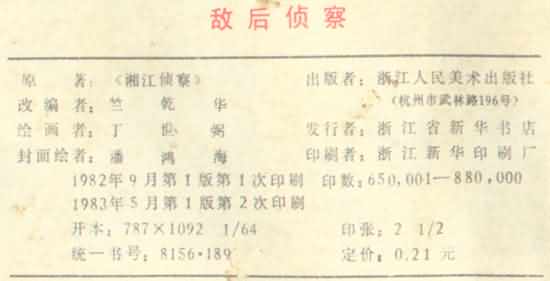 敌后侦察
原 著：《湘江侦察》 出版者：浙江人民美术出版社
改编者：竺 乾 华 （杭州市武林路196号）
绘画者：丁 世 弼 发行者：浙江省新华书店
封面绘者：潘 鸿 海 印刷者：浙江新华印刷厂
1982年9月第1版第1次印刷 印数：650,001—880,000
1983年5月第1版第2次印刷
开本：787×1092 1/64 印张：2 1/2
统一书号：8156·189 定价：0.21元